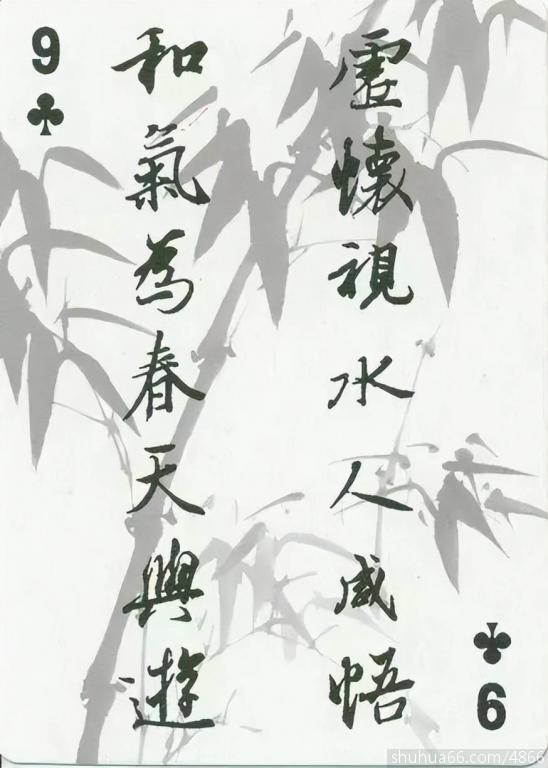 9
虛懷視水人咸悟
和氣為春天與遊
9
shuhua66.com/4866